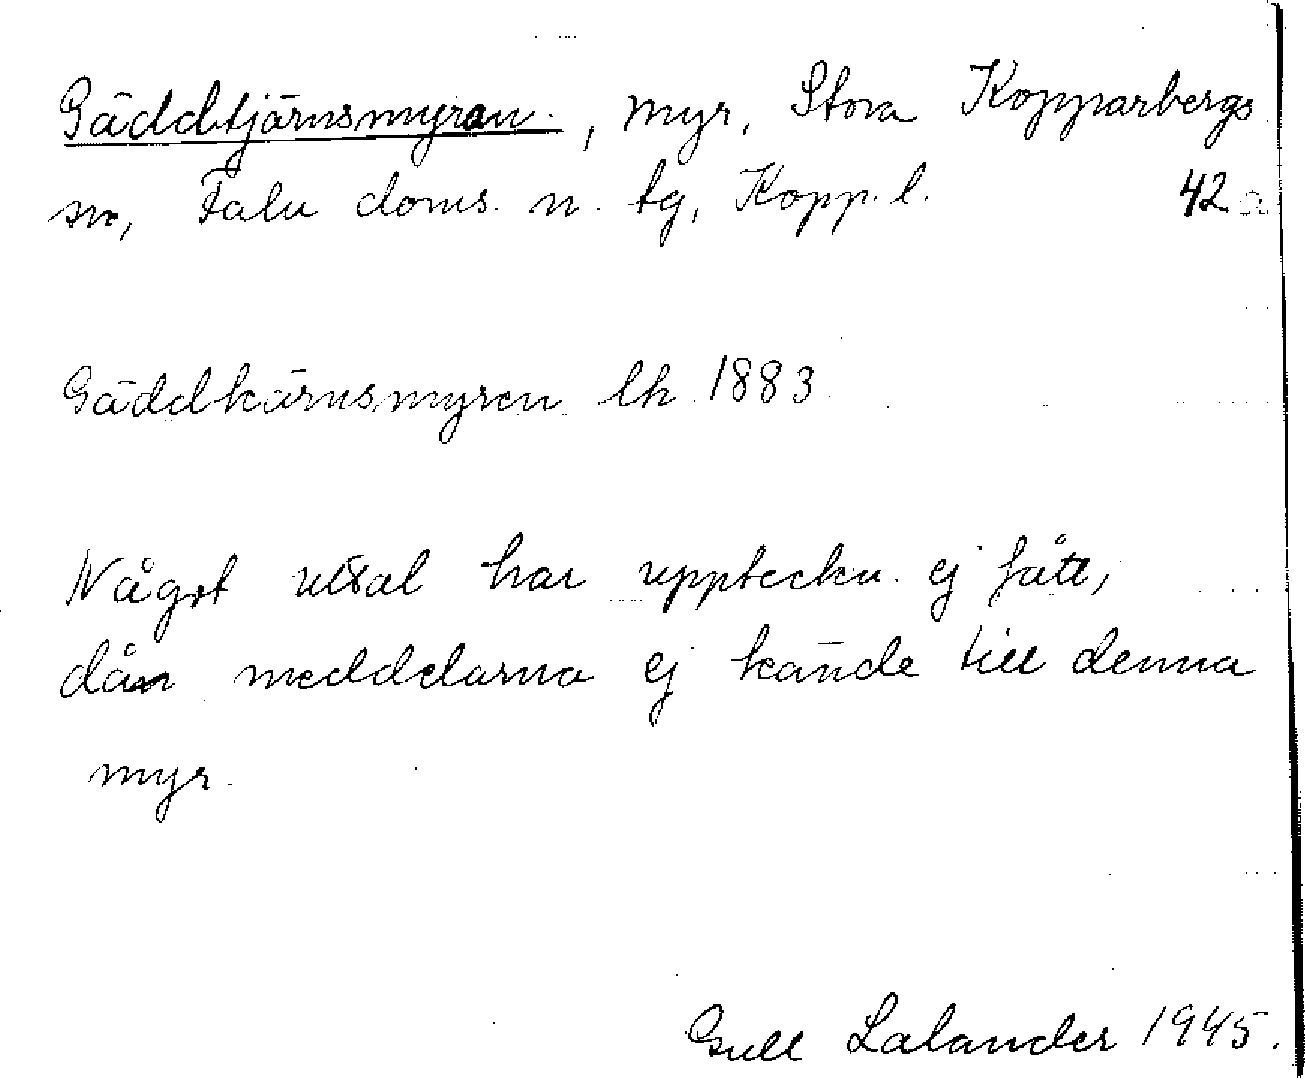 Gäddtjärnsmyran, myr, Stora Kopparbergs
sn, Falu doms. n. tg, Kopp. l. 42
Gäddkärnsmyren lk 1883
Något uttal har uppteckn. ej fått,
då meddelarna ej kände till denna
myr.
Gull Lalander 1945.